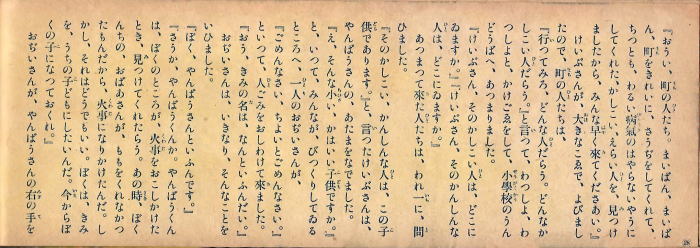 『おうい、町の人たち。まいばん、まいば
ん、町をきれいに、さうぢをしてくれて、
ちつとも、わるい病氣のはやらないやうに
してくれた、かしこい、えらい人を、見つけ
ましたから、みんな早く來てくださあい。』
けいぶさんが、大きなこゑで、よびまし
たので、町の人たちは、
『行つてみろ、どんな人だらう。どんなか
しこい人だらう。』と言つて、わつしよ、わ
つしよと、かけごゑをして、小學校のうん
どうばへ、あつまりました。
『けいぶさん、そのかしこい人は、どこに
ゐますか。』『けいぶさん、そのかんしんな
人は、どこにゐますか。』
あつまつて來た人たちは、われ一に、問
ひました。
『そのかしこい、かんしんな人は、この子
供であります。』と、言つたけいぶさんは、
やんばうさんの、あたまをなでました。
『え、そんな小い、かはいい子供ですか。』
と、いつて、みんなが、びつくりしてゐる
ところへ、一人のおぢいさんが、
『ごめんなさい、ちよいとごめんなさい。』
といつて、人ごみをおしわけて來ました。
『おう、きみの名は、なんといふんだい。』
おぢいさんは、いきなり、そんなことを
いひました。
『ぼく、やんばうさんといふんです。』
『さうか、やんばうくんか。やんばうくん
は、ぼくのところが、火事をおこしかけた
とき、見つけてくれたらう。あの時、ぼく
んちの、おばあさんが、ももをくれなかつ
たもんだから、火事になりかけたんだ。し
かし、それはどうでもいい。ぼくは、きみ
を、うちの子どもにしたいんだ。今からぼ
くの子になつておくれ。』
おぢいさんが、やんばうさんの右の手を